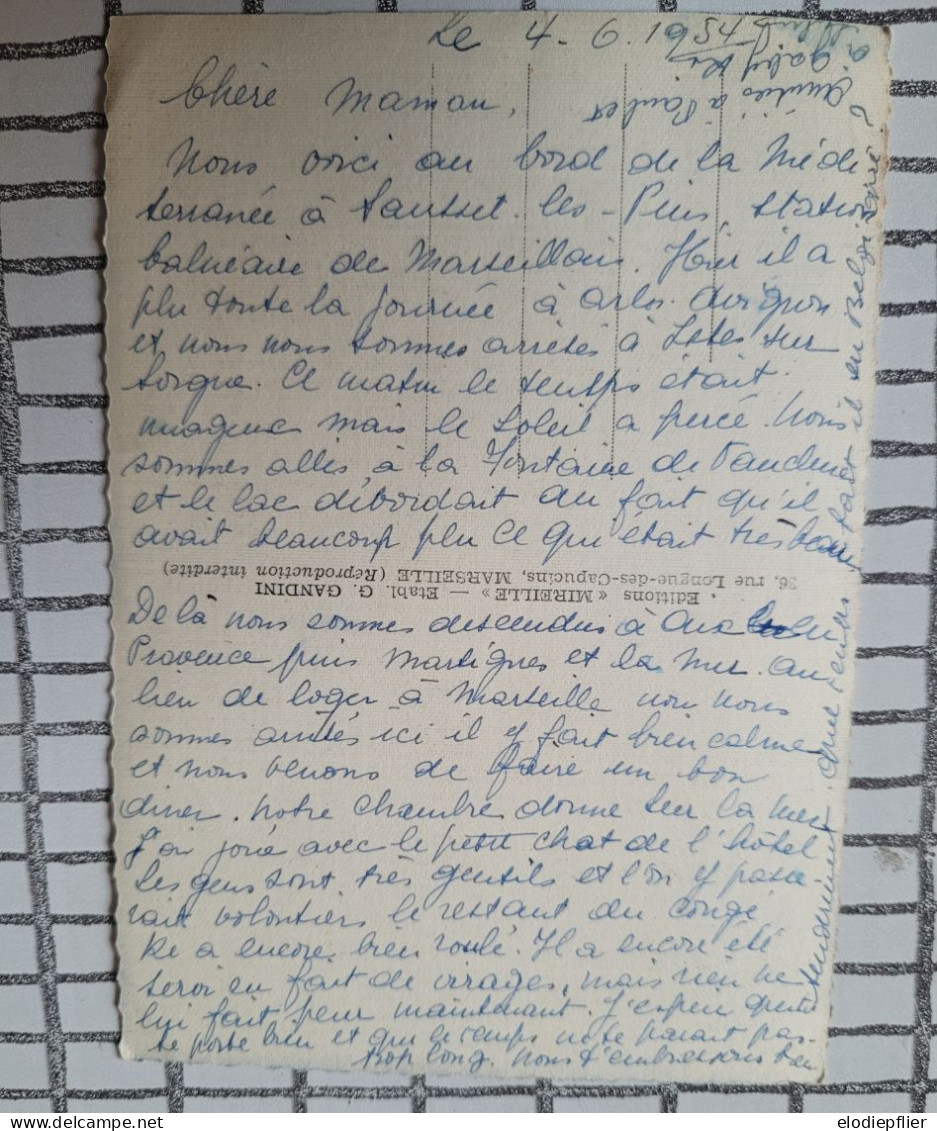 Le 4-6.1954
Chère Maman,
Nous voici au bord de la Médi
terranée à Sausset-les-Pins, station
balnéaire de Marseillais. Hier il a
plu toute la journée à Arles. Avignon
et nous nous sommes arrêtés à sur
Sorgue. Ce matin le temps était
nuageux mais le soleil a percé. Nous
sommes allés à la Fontaine de Vaucluse
et le lac débordait du fait qu'il
avait beaucoup plu ce qui était très beau
Editions « MIREILLE » — Etabl. G. GANDINI
36, rue Longue-des-Capucins, MARSEILLE (Reproduction interdite)
De là nous sommes descendus à Aix en
Provence puis Martigues et la mer. au
lieu de loger à Marseille nous nous
sommes arrêtés ici il y fait bien calme
et nous venons de faire un bon
diner. Notre chambre donne sur la mer
J'ai joué avec le petit chat de l'hôtel
Les gens sont très gentils et l'on y passe
rait volontiers le restant du congé
a encore bien roulé. Il a encore été
servi en fait de virages, mais rien ne
lui fait peur maintenant. J'espère que tu
te porte bien et que le temps ne te parait pas
trop long. Nous t'embrassons bien
tendrement. que temps fait il en Belgique
Amitiés à et
Gaby